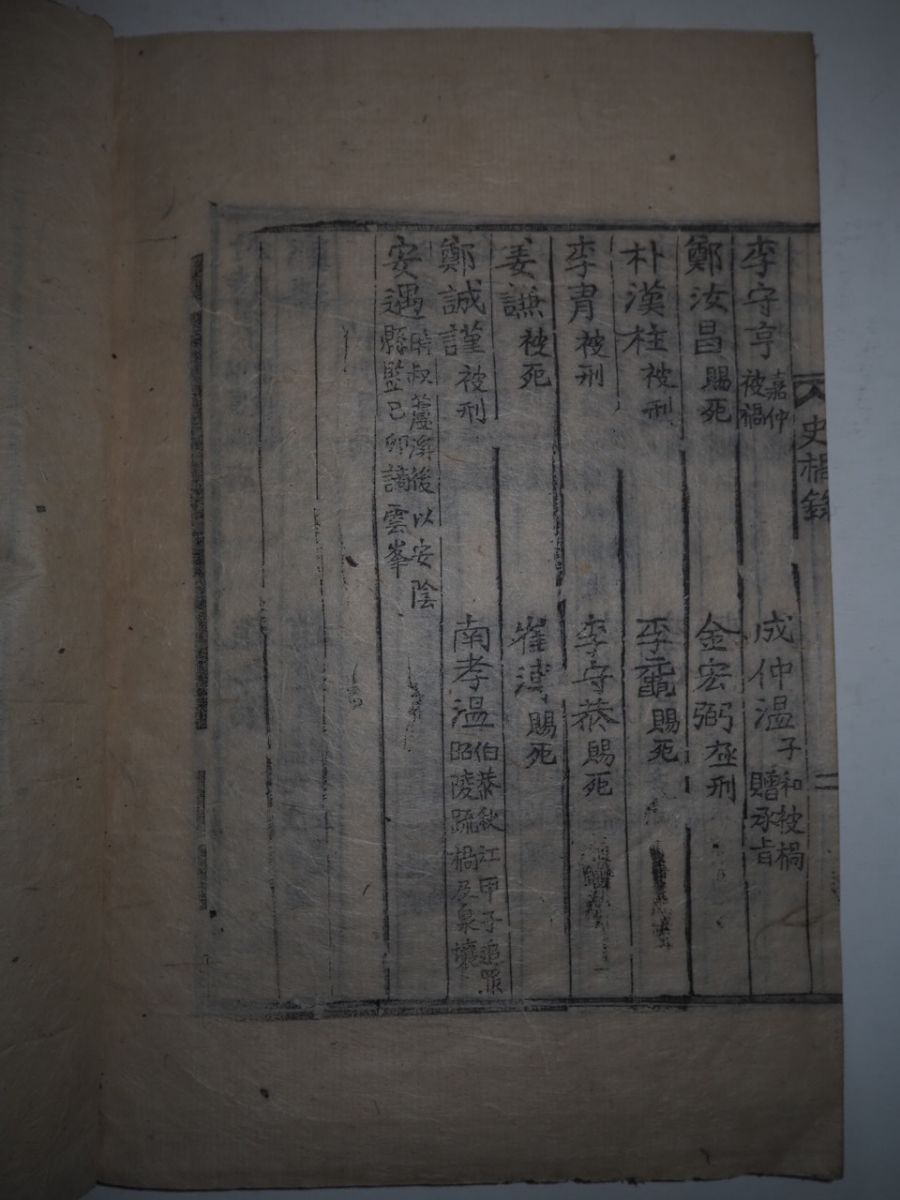 史禍錄
二
李守亨 嘉仲被禍 成仲溫 子和被禍贈承旨
鄭汝昌 賜死 金宏弼 極刑
朴漢柱 被刑 李黿 賜死
李胄 被刑 李守恭 賜死
姜謙 被死 崔溥 賜死
鄭誠謹 被刑 南孝溫 伯恭秋江甲子追罪昭陵䟽禍及泉壤
安遇 時叔蘆溪後以安陰縣監己卯謫雲峯